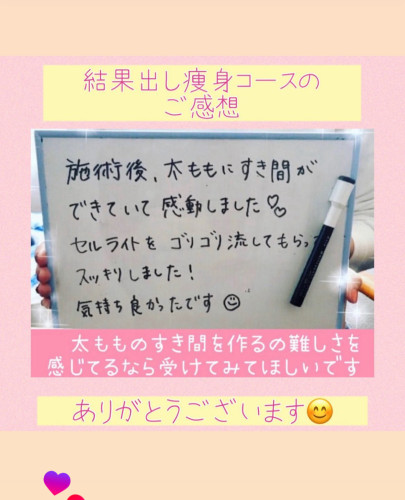 結果出し痩身コースの
ご感想
施術後、太ももにすき間が
できていて感動しました♡♡
セルライトを ゴリゴリ流してもらって
スッキリしました!
気持ち良かったです☺
太もものすき間を作るの難しさを
感じてるなら受けてみてほしいです
ありがとうございます😊